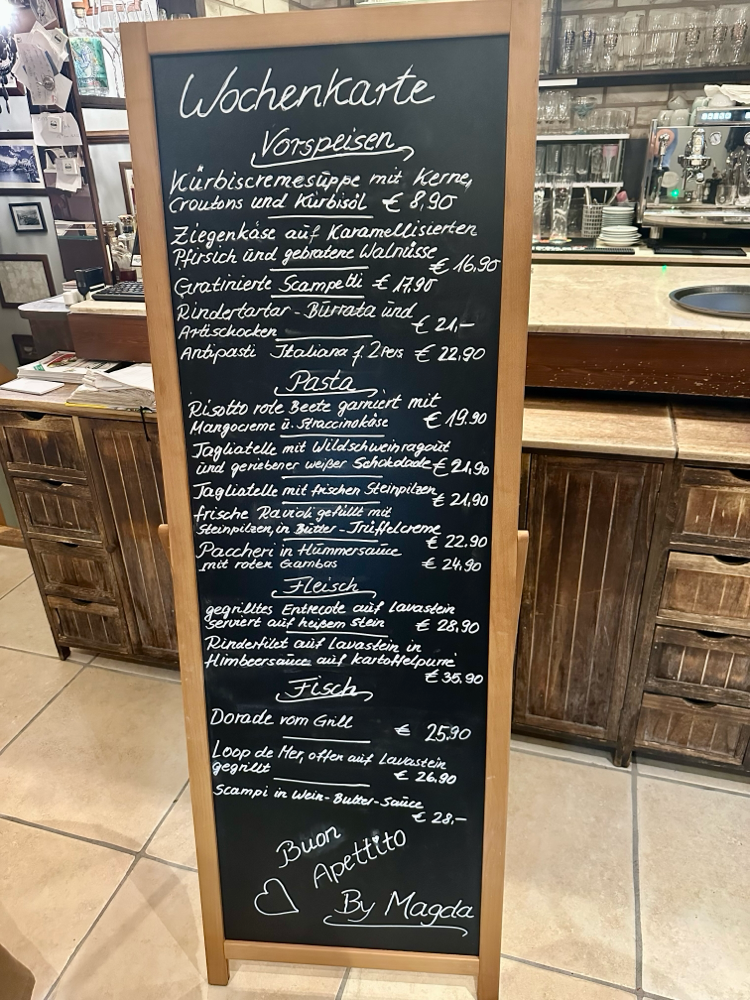 Wochenkarte
Vorspeisen
Kürbiscremesüppe mit Kerne,
Croutons und Kürbisöl € 8,90
Ziegenkäse auf Karamellisierten
Pfirsich und gebratene Walnüsse
€ 16,90
Gratinierte Scampetti € 17,90
Rindertartar - Burrata und
Artischocken € 21,-
Antipasti Italiana f. 2 Pers € 22,90
Pasta
Risotto rote Beete garniert mit
Mangocreme u. Straccinokäse € 19.90
Tagliatelle mit Wildschweinragout
und geriebener weißer Schokolade € 21,90
Tagliatelle mit frischen Steinpilzen € 21,90
frische Ravioli gefüllt mit
Steinpilzen, in Butter - Trüffelcreme
€ 22.90
Paccheri in Hummersauce
mit roten Gambas € 24,90
Fleisch
gegrilltes Entrecote auf Lavastein
serviert auf heißem Stein € 28,90
Rinderfilet auf Lavastein in
Himbeersauce auf Kartoffelpurré
€ 35.90
Fisch
Dorade vom Grill € 25.90
Loop de Mer, offen auf Lavastein
gegrillt € 26.90
Scampi in Wein-Butter-Sauce
€ 28,-
Buon
Apettito
By Magda